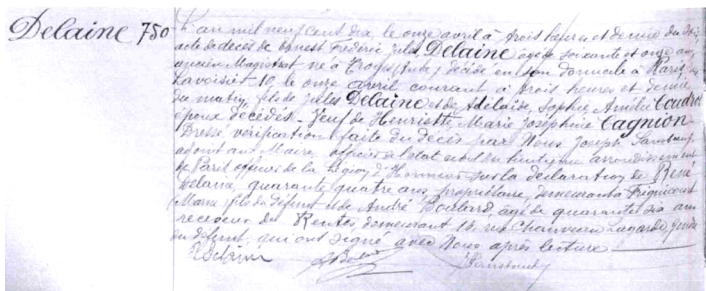 Delaine 750
L'an mil neuf cent dix le onze avril à trois heures et demie du soir
acte de décès de Ernest Frédéric Jules Delaine âgé de soixante et onze ans
ancien Magistrat né à Troyes (Aube) décédé en son domicile à Paris rue
Lavoisier 10, le onze avril courant à trois heures et demie
du matin, fils de Jules Delaine et de Adélaïde, Sophie Amélie Coudrot
époux décédés. Veuf de Henriette, Marie Joséphine Cagnion
Dressé vérification faite du décès par Nous Joseph
adjoint au Maire, officier de l'état civil du huitième arrondissement
de Paris officier de la Légion d'Honneur sur la déclaration de René
Delaine, quarante quatre ans, propriétaire, demeurant à
Marne fils du défunt et de André Boulard, âgé de quarante six ans
receveur de Rentes, demeurant 16, rue Chauveau Lagarde, gendre
du défunt, qui ont signé avec Nous après lecture